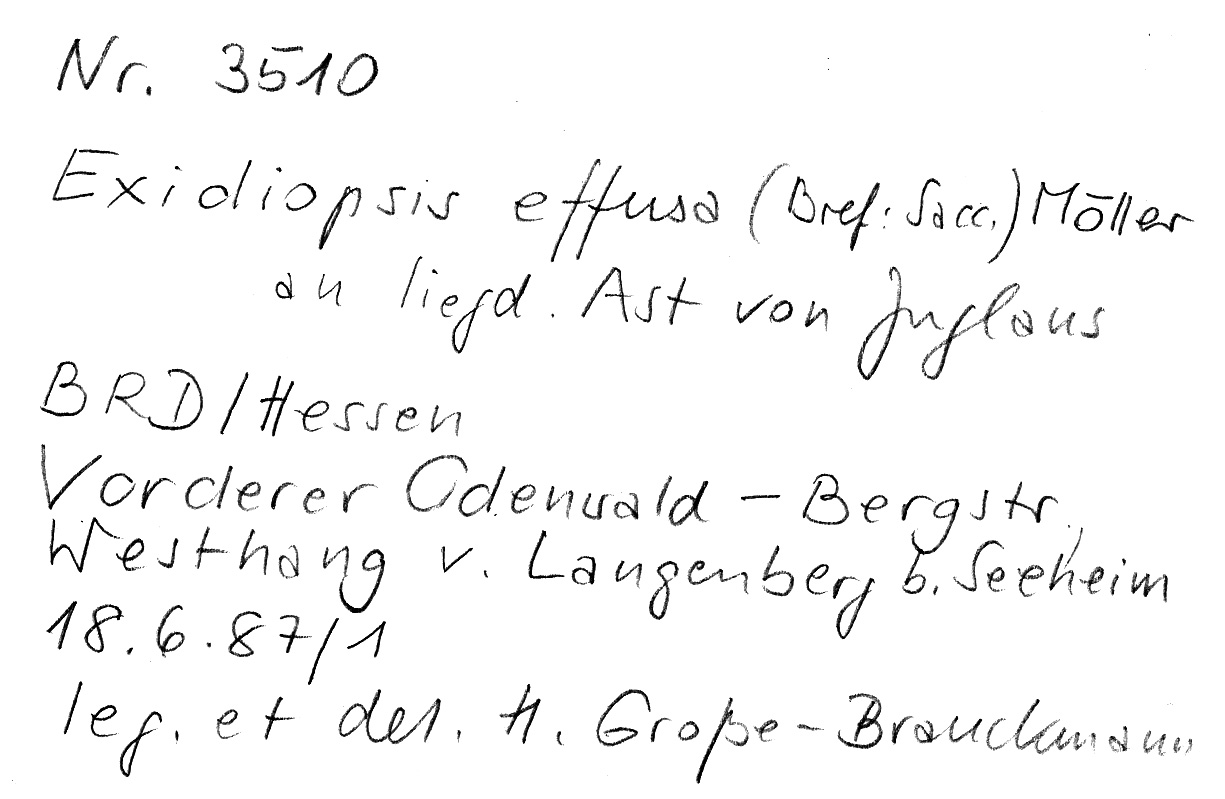 Nr. 3510
Exidiopsis effusa (Bref: Sacc.) Möller
an liegd. Ast von Juglans
BRD/Hessen
Vorderer Odenwald - Bergstr.,
Westhang v. Langenberg b. Seeheim
18.6.87/1
leg. et det. H. Große-Brauckmann